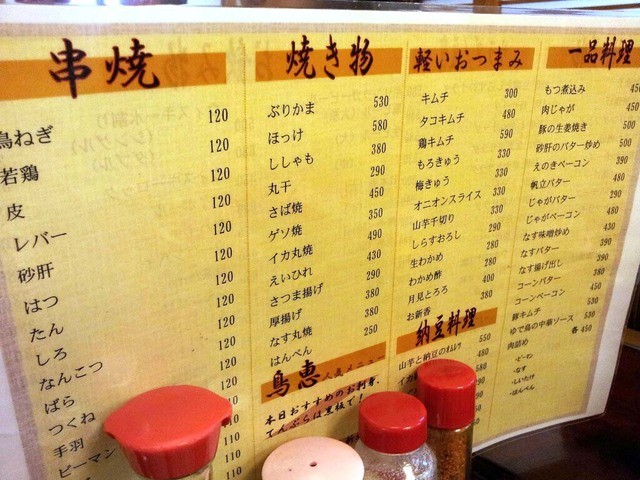 串焼
鳥ねぎ 120
若鶏 120
皮 120
レバー 120
砂肝 120
はつ 120
たん 120
しろ 120
なんこつ 120
ばら
つくね
手羽 110
ピーマン 110
焼き物
ぶりかま 530
ほっけ 580
ししゃも 380
丸干 290
さば焼 450
ゲソ焼 350
イカ丸焼 490
えいひれ 430
さつま揚げ 290
厚揚げ 380
なす丸焼 380
はんぺん 250
鳥恵 人気メニュー
本日おすすめのお刺身、
てんぷらは黒板で！
軽いおつまみ
キムチ 300
タコキムチ 480
鶏キムチ 590
もろきゅう 330
梅きゅう 330
オニオンスライス 330
山芋千切り 330
しらすおろし 290
生わかめ 280
わかめ酢 280
月見とろろ 400
お新香 380
納豆料理
山芋と納豆のオムレツ 550
一品料理
もつ煮込み 450
肉じゃが 450
豚の生姜焼き 500
砂肝のバター炒め 500
えのきベーコン 390
帆立バター 490
じゃがバター 290
じゃがベーコン 480
なす味噌炒め 430
なすバター 390
なす揚げ出し 390
コーンバター 380
コーンベーコン 450
豚キムチ 530
ゆで鳥の中華ソース 530
肉詰め 各450
・ピーマン
・なす
・しいたけ
・はんぺん